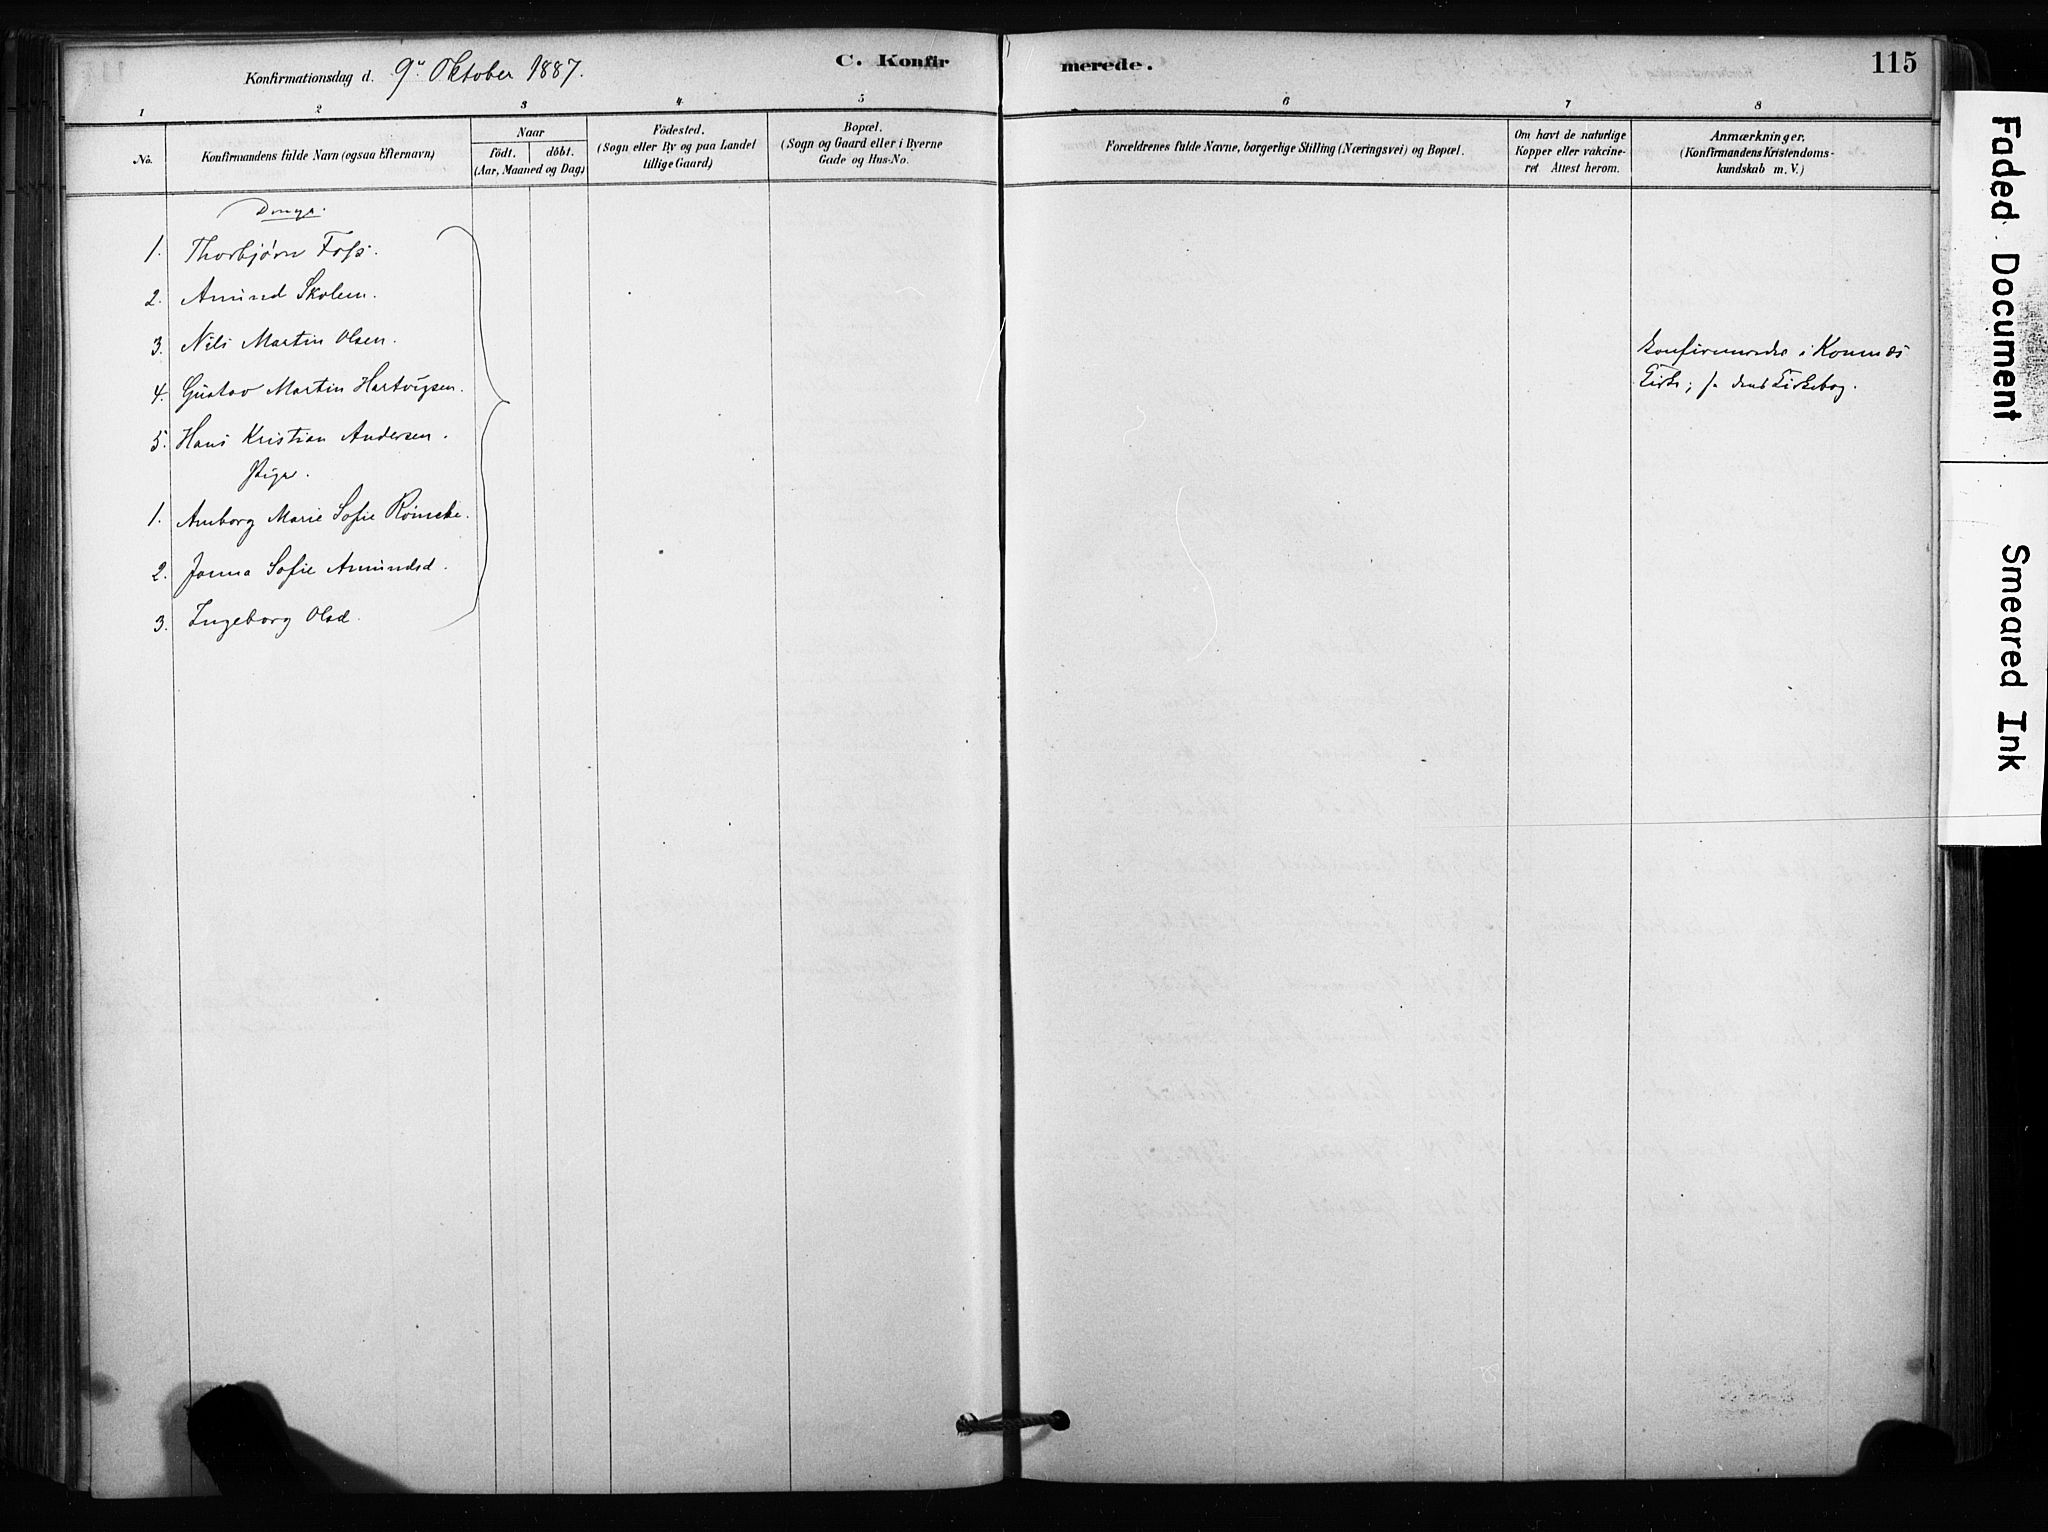 115
Konfirmationsdag d. 9de Oktober 1887.
C. Konfirmerede.
1 2 3 4 5 6 7 8
No.
Konfirmandens fulde Navn (ogsaa Efternavn)
Naar
födt. döbt.
(Aar, Maaned og Dag)
Födested.
(Sogn eller By og paa Landet
tillige Gaard)
Bopæl.
(Sogn og Gaard eller i Byerne
Gade og Hus-No.
Forældrenes fulde Navne, borgerlige Stilling (Næringsvei) og Bopæl.
Om havt de naturlige
Kopper eller vakcine-
ret Attest herom.
Anmærkninger,
(Konfirmandens Kristendoms-
kundskab m. V.)
Drenge.
1. Thorbjørn Foss.
2. Amund Skolem.
3. Nils Martin Olsen.
4. Gustav Martin Hartvigsen.
5. Hans Kristian Andersen.
Piger.
1. Amborg Marie Sofie
2. Janna Sofie Amundsd.
3. Ingeborg Olsd.
konfirmerede i Komnæs
Kirke; se dens Kirkebog.
Faded Document
Smeared Ink